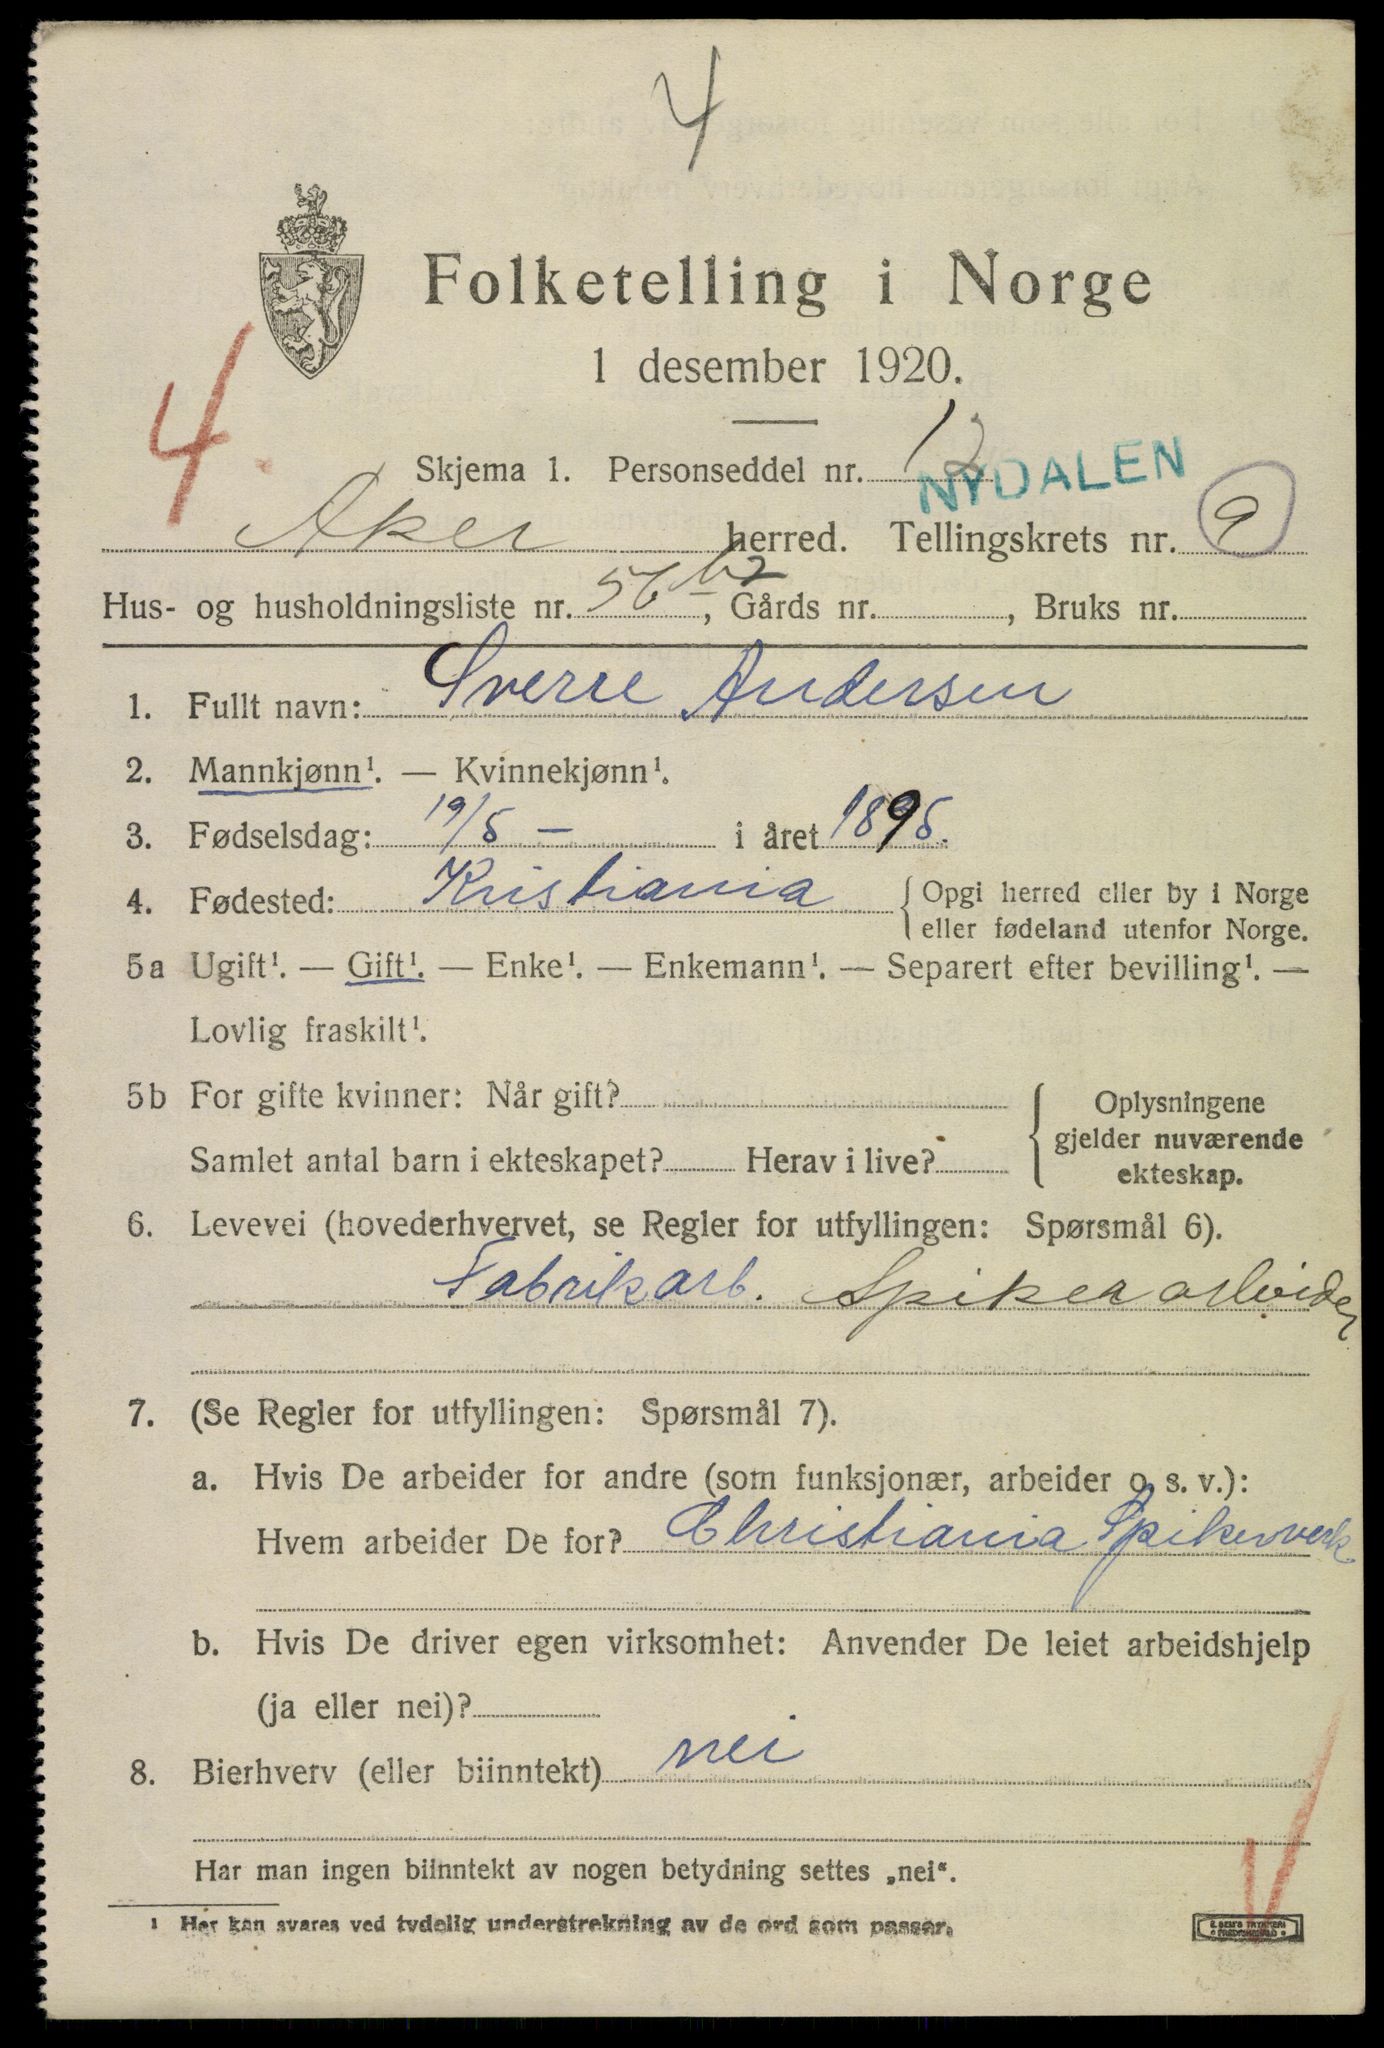 4
Folketelling i Norge
1 desember 1920.
4.
Skjema 1. Personseddel nr. 12
NYDALEN
Aker herred. Tellingskrets nr. 9
Hus- og husholdningsliste nr. 56 b2, Gårds nr. , Bruks nr.
1. Fullt navn: Sverre Andersen
2. Mannkjønn¹. — Kvinnekjønn¹.
3. Fødselsdag: 19/5 — i året 1895.
4. Fødested: Kristiania { Opgi herred eller by i Norge
eller fødeland utenfor Norge.
5a Ugift¹. — Gift¹. — Enke¹. — Enkemann¹. — Separert efter bevilling¹. —
Lovlig fraskilt¹.
5b For gifte kvinner: Når gift? { Oplysningene
gjelder nuværende
Samlet antal barn i ekteskapet? Herav i live?
ekteskap.
6. Levevei (hovederhvervet, se Regler for utfyllingen: Spørsmål 6).
Fabrikarb. Spikerarbeider
7. (Se Regler for utfyllingen: Spørsmål 7).
a. Hvis De arbeider for andre (som funksjonær, arbeider o. s. v.):
Hvem arbeider De for? Christiania Spikerverk
b. Hvis De driver egen virksomhet: Anvender De leiet arbeidshjelp
(ja eller nei)?
8. Bierhverv (eller biinntekt) nei
Har man ingen biinntekt av nogen betydning settes „nei“.
¹ Her kan svares ved tydelig understrekning av de ord som passer.